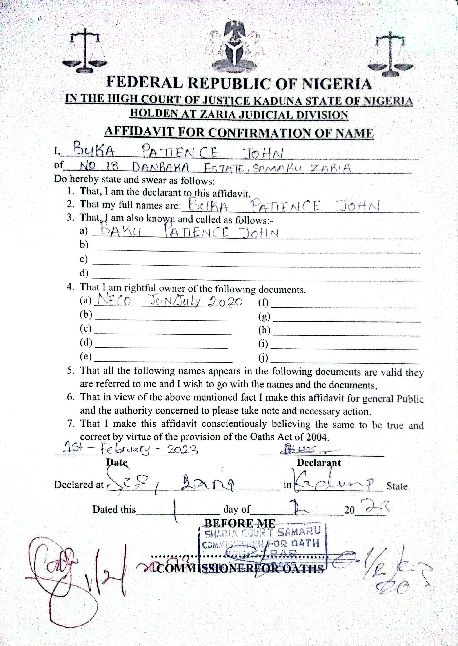 FEDERAL REPUBLIC OF NIGERIA
IN THE HIGH COURT OF JUSTICE KADUNA STATE OF NIGERIA
HOLDEN AT ZARIA JUDICIAL DIVISION
AFFIDAVIT FOR CONFIRMATION OF NAME
I, BUKA PATIENCE JOHN
of NO 18 DANBAKA ESTATE, SAMARU ZARIA
Do hereby state and swear as follows:
1. That, I am the declarant to this affidavit.
2. That my full names are: BUKA PATIENCE JOHN
3. That, I am also known and called as follows:-
a) BAKU PATIENCE JOHN
b)
c)
d)
4. That I am rightful owner of the following documents.
(a) NECO JUN/July 2020 (f)
(b) (g)
(c) (h)
(d) (i)
(e) (j)
5. That all the following names appears in the following documents are valid they
are referred to me and I wish to go with the names and the documents.
6. That in view of the above mentioned fact I make this affidavit for general Public
and the authority concerned to please take note and necessary action.
7. That I make this affidavit conscientiously believing the same to be true and
correct by virtue of the provision of the Oaths Act of 2004.
1st - February - 2023
Date Declarant
Declared at in Kaduna State.
Dated this 1 day of 2 2023
BEFORE ME
SHARIA COURT SAMARU
COMMISSIONER FOR OATH
COMMISSIONER FOR OATHS
1/2/